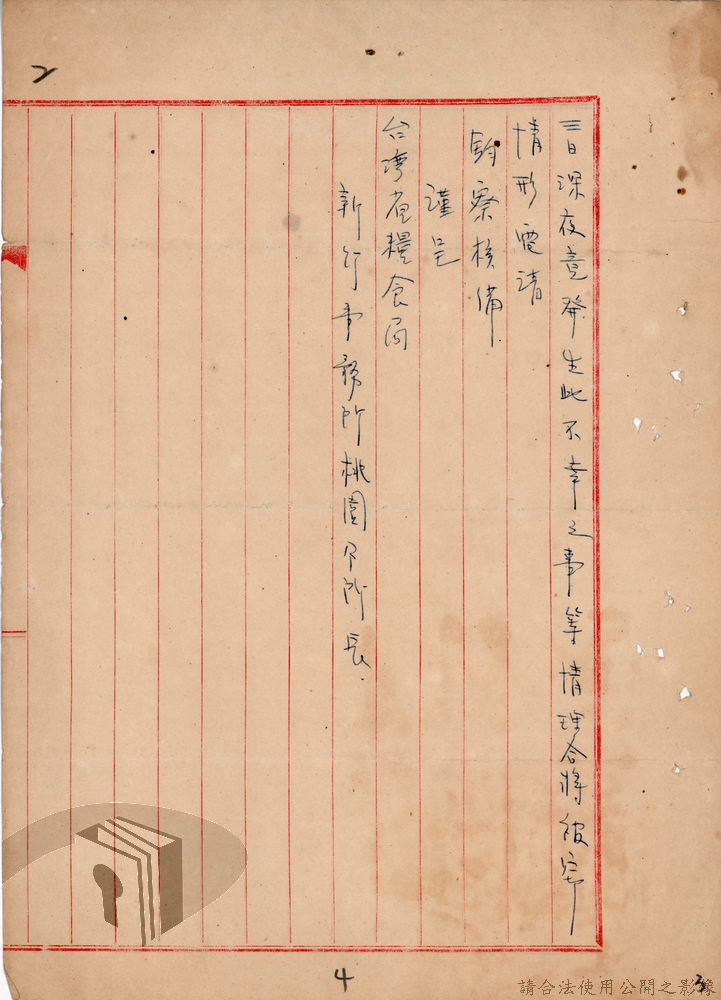 三日深夜竟發生此不幸之事等情理合將彼害
情形電請
鈞察核備
謹呈
台湾省糧食局
新竹事務所桃園分所長
2
4
3
請合法使用公開之影像